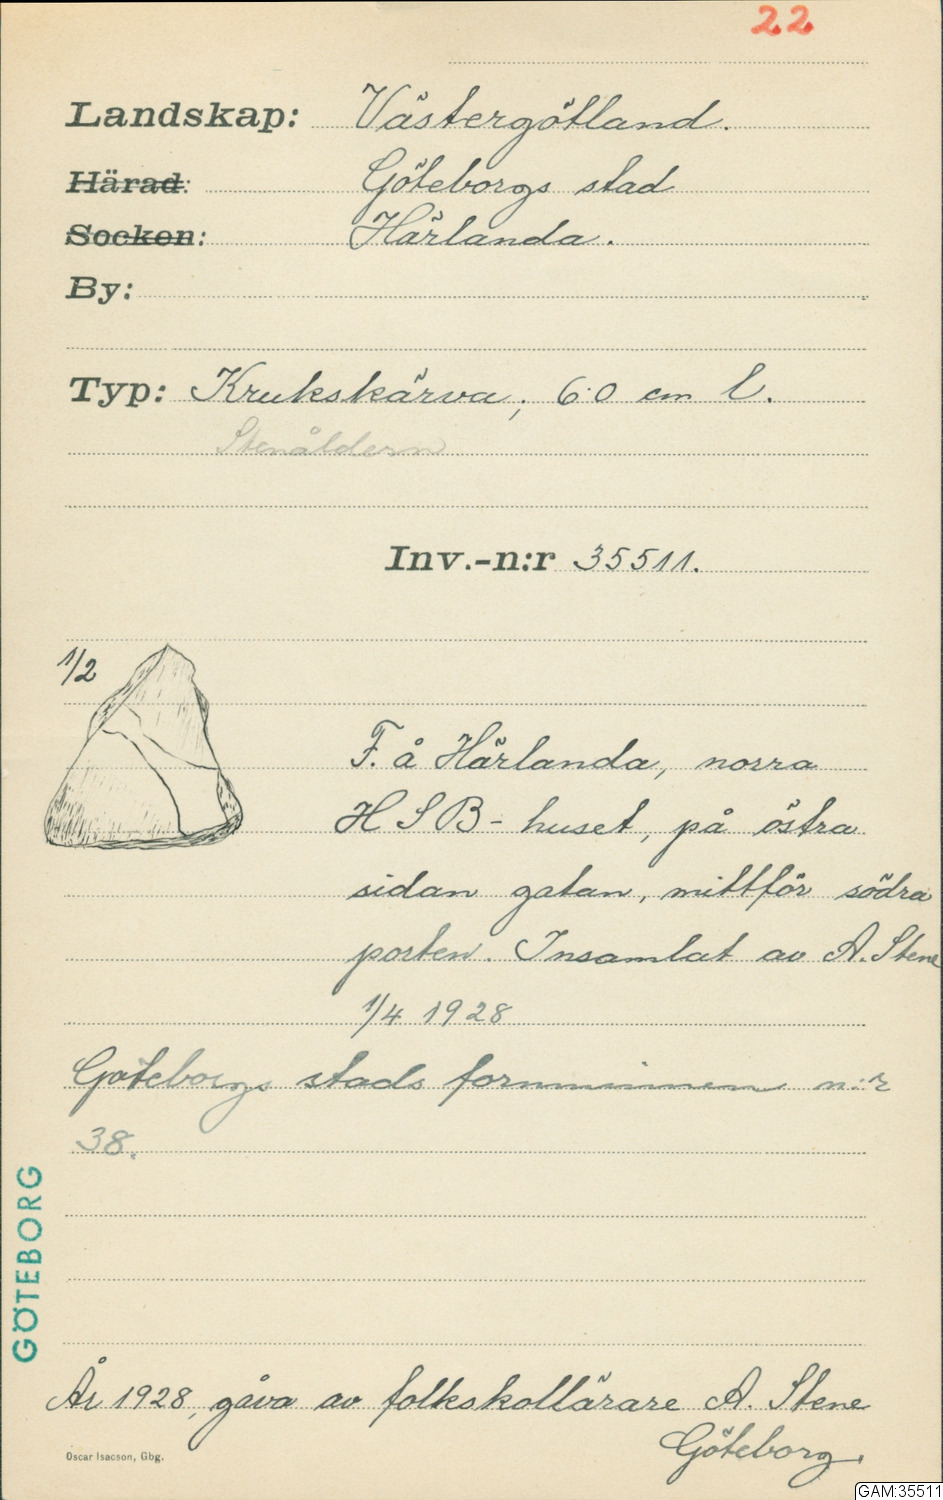 22
Landskap: Västergötland.
Härad: Göteborgs stad
Socken: Härlanda.
By:
Typ: Krukskärva; 6.0 cm l.
Stenåldern
Inv.-n:r 35511.
1/2
F. å Härlanda, norra
HSB-huset, på östra
sidan gatan, mittför södra
porten. Insamlat av A. Stene
1/4 1928
Göteborgs stads fornminnen n:r
38.
GÖTEBORG
År 1928, gåva av folkskollärare A. Stene
Göteborg.
Oscar Isacson, Gbg.
GAM:35511